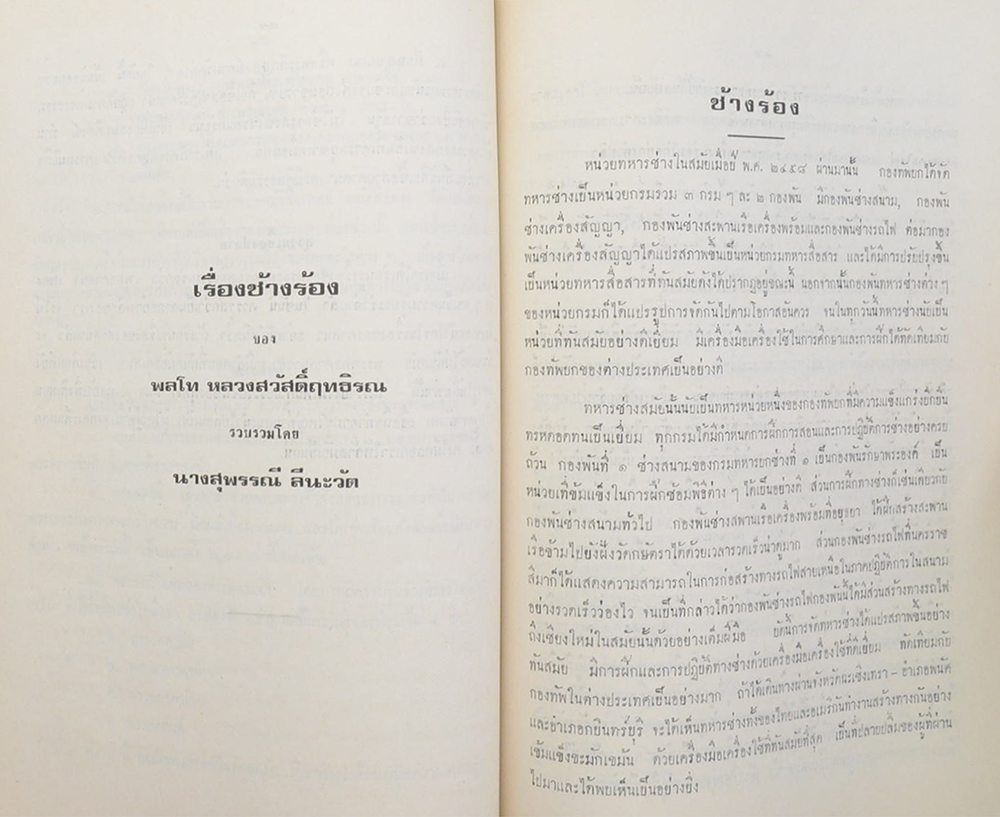 เรื่องช้างร้อง
ของ
พลโท หลวงสวัสดิ์ฤทธิรณ
รวบรวมโดย
นางสุพรรณี ลีนะวัต
ช้างร้อง
หน่วยทหารช่างในสมัยเมื่อปี พ.ศ. ๒๔๕๘ ผ่านมานั้น กองทัพบกได้จัด
ทหารช่างเป็นหน่วยกรมรวม ๓ กรม ๆ ละ ๒ กองพัน มีกองพันช่างสนาม, กองพัน
ช่างเครื่องสัญญา, กองพันช่างสะพานเรือเครื่องพร้อมและกองพันช่างรถไฟ ต่อมากอง
พันช่างเครื่องสัญญาได้แปรสภาพขึ้นเป็นหน่วยกรมทหารสื่อสาร และได้มีการปรับปรุงขึ้น
เป็นหน่วยทหารสื่อสารที่ทันสมัยดังได้ปรากฏอยู่ขณะนี้ นอกจากนั้นกองพันทหารช่างต่าง ๆ
ของหน่วยกรมก็ได้แปรรูปการจัดกันไปตามโอกาสอันควร จนในทุกวันนี้ทหารช่างนับเป็น
หน่วยที่ทันสมัยอย่างดีเยี่ยม มีเครื่องมือเครื่องใช้ในการศึกษาและการฝึกได้ทัดเทียมกับ
กองทัพบกของต่างประเทศเป็นอย่างดี
ทหารช่างสมัยนั้นนับเป็นทหารหน่วยหนึ่งของกองทัพบกที่มีความแข็งแกร่งบึกบึน
ทรหดอดทนเป็นเยี่ยม ทุกกรมได้มีกำหนดการฝึกการสอนและการปฏิบัติการช่างอย่างครบ
ถ้วน กองพันที่ ๑ ช่างสนามของกรมทหารบกช่างที่ ๑ เป็นกองพันรักษาพระองค์ เป็น
หน่วยที่เข้มแข็งในการฝึกซ้อมพิธีต่าง ๆ ได้เป็นอย่างดี ส่วนการฝึกทางช่างก็เช่นเดียวกับ
กองพันช่างสนามทั่วไป กองพันช่างสพานเรือเครื่องพร้อมที่อยุธยา ได้ฝึกสร้างสะพาน
เรือข้ามไปยังฝั่งวัดกษัตราได้ด้วยเวลารวดเร็วน่าดูมาก ส่วนกองพันช่างรถไฟที่นครราช
สีมาก็ได้แสดงความสามารถในการก่อสร้างทางรถไฟสายเหนือในภาคปฏิบัติการในสนาม
อย่างรวดเร็วว่องไว จนเป็นที่กล่าวได้ว่ากองพันช่างรถไฟกองพันนี้ได้มีส่วนสร้างทางรถไฟ
ถึงเชียงใหม่ในสมัยนั้นด้วยอย่างเต็มฝีมือ บัดนี้การจัดทหารช่างได้แปรสภาพขึ้นอย่าง
ทันสมัย มีการฝึกและการปฏิบัติทางช่างด้วยเครื่องมือเครื่องใช้ที่ดีเยี่ยม ทัดเทียมกับ
กองทัพในต่างประเทศเป็นอย่างมาก ถ้าได้เดินทางผ่านจังหวัดฉะเชิงเทรา – อำเภอพนัต
และอำเภอกบินทร์บุรี จะได้เห็นทหารช่างทั้งของไทยและอเมริกันทำงานสร้างทางกันอย่าง
เข้มแข็งขะมักเขม้น ด้วยเครื่องมือเครื่องใช้ที่ทันสมัยที่สุด เป็นที่ปลาบปลื้มของผู้ที่ผ่าน
ไปมาและได้พบเห็นเป็นอย่างยิ่ง